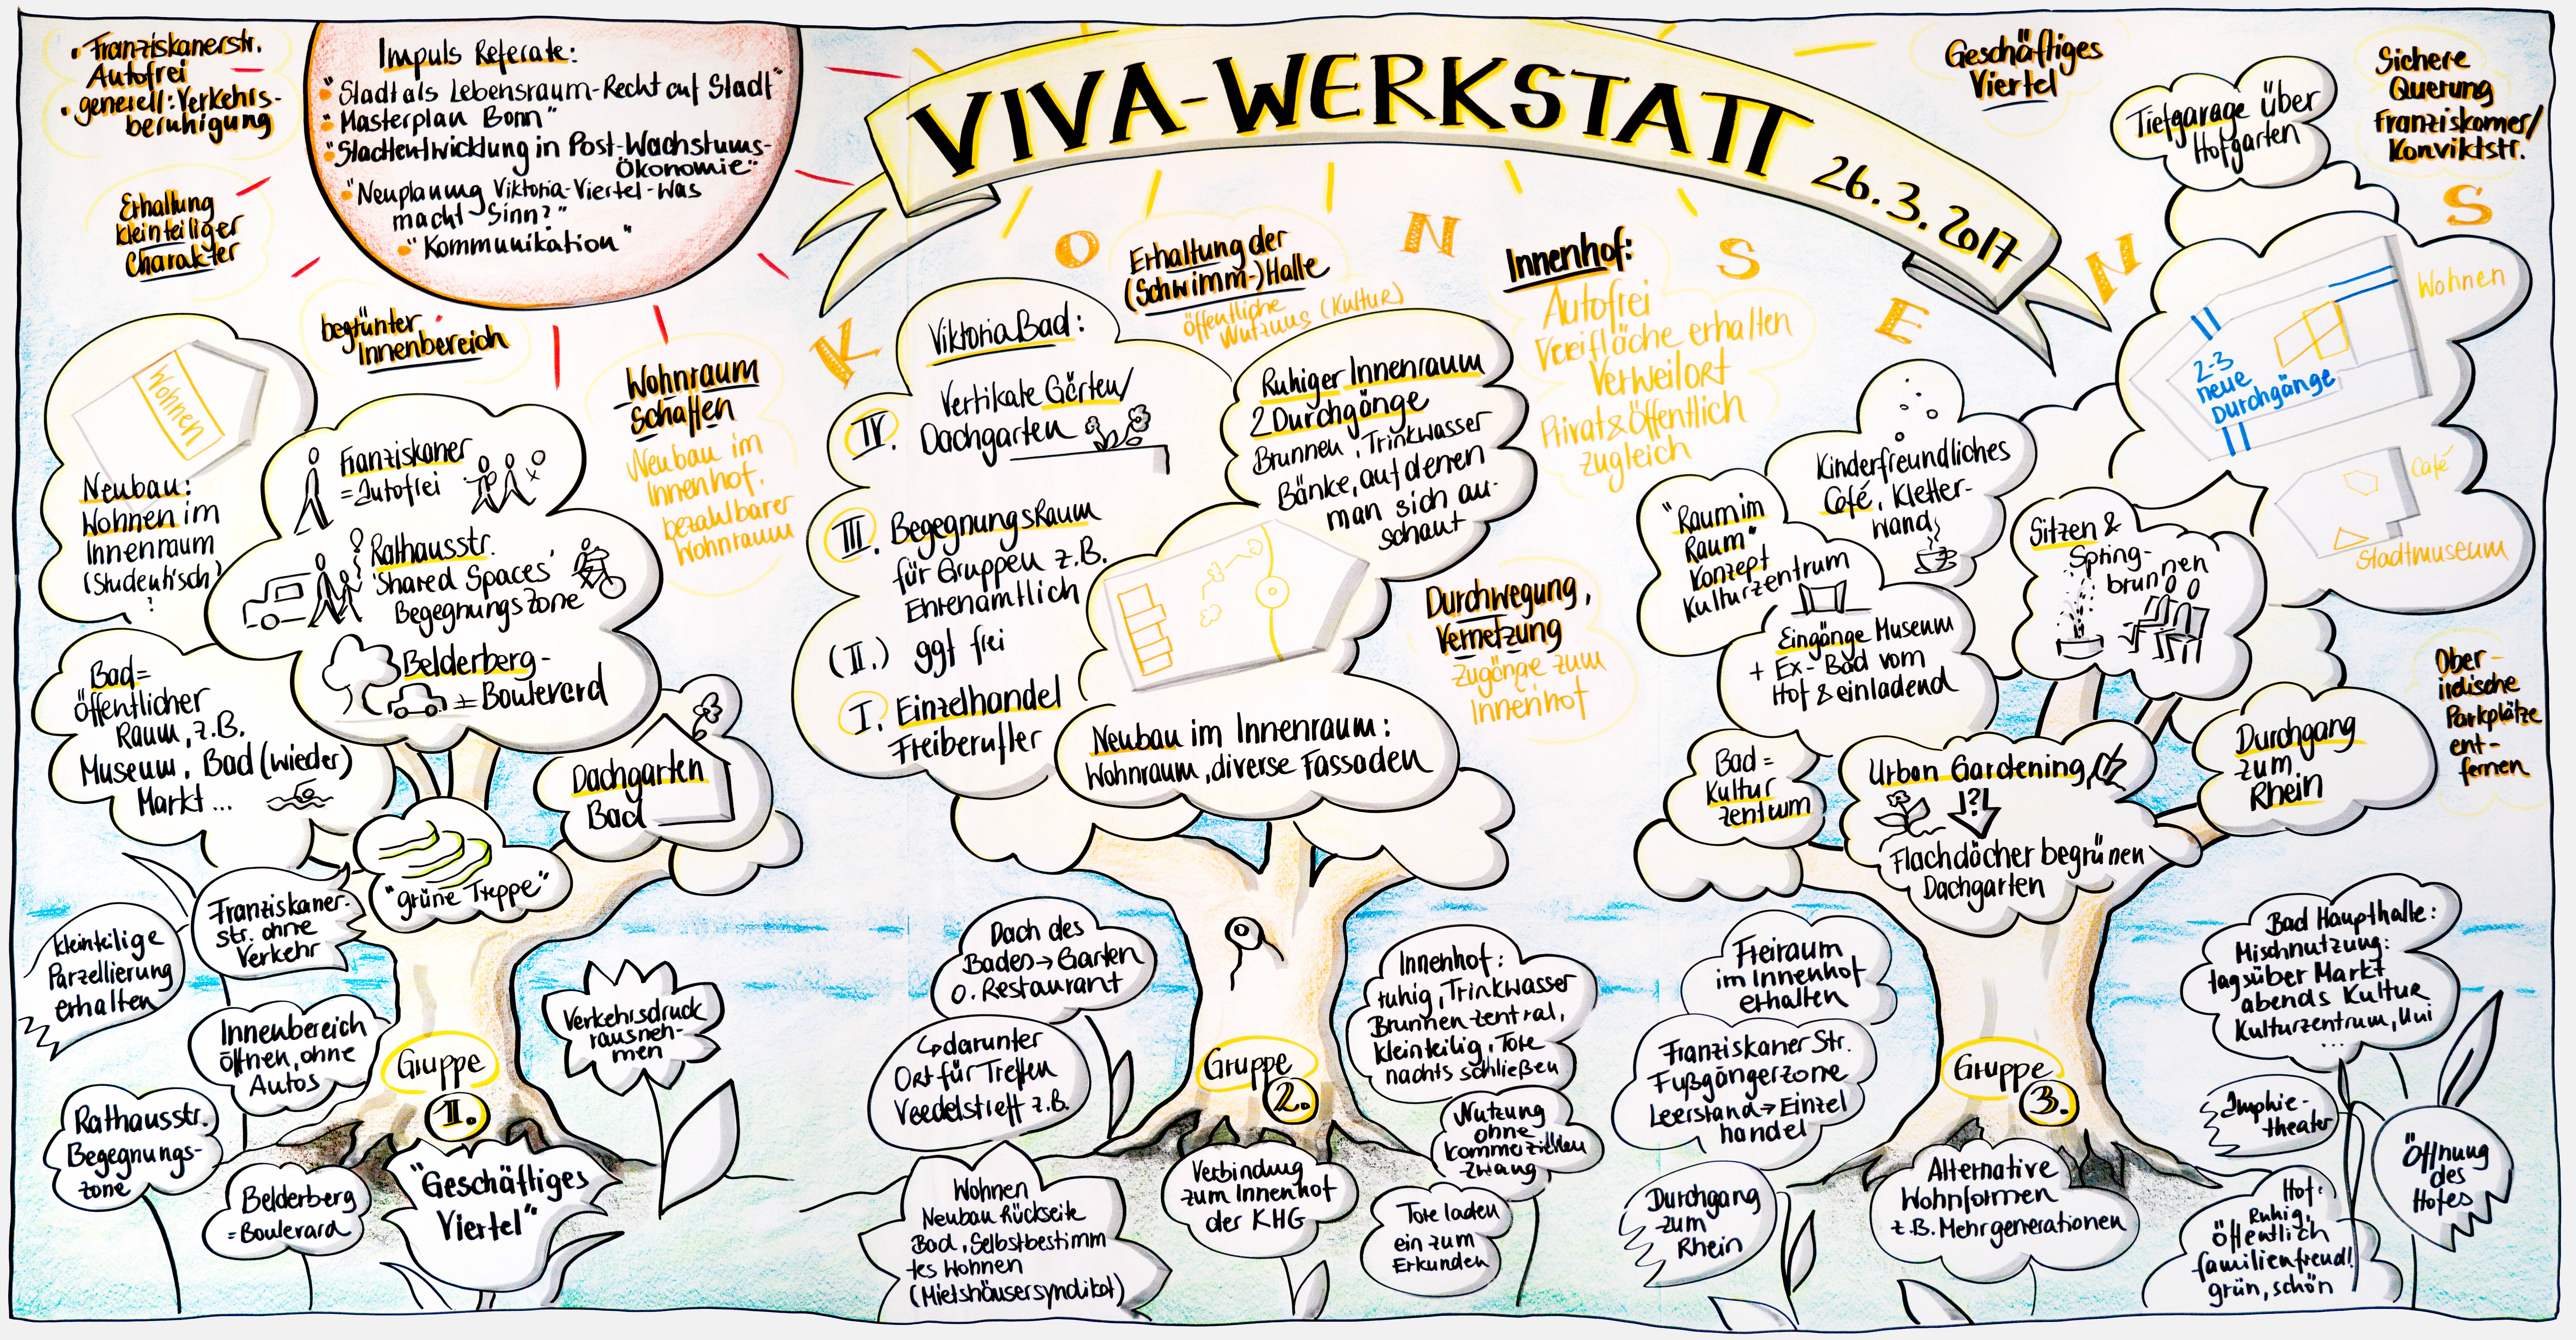 • Franziskanerstr.
Autofrei
• generell: Verkehrs-
beruhigung
Erhaltung
kleinteiliger
Charakter
Impuls Referate:
• "Stadt als Lebensraum-Recht auf Stadt"
• "Masterplan Bonn"
• "Stadtentwicklung in Post-Wachstums-
Ökonomie"
• "Neuplanung Viktoria-Viertel-Was
macht Sinn?"
• "Kommunikation"
VIVA-WERKSTATT 26.3.2017
KONSENS
Geschäftiges
Viertel
Sichere
Querung
Franziskaner/
Konviktstr.
begrünter
Innenbereich
Wohnraum
schaffen
Neubau im
Innenhof.
bezahlbarer
Wohnraum
Erhaltung der
(Schwimm-)Halle
öffentliche
Nutzung (Kultur)
Innenhof:
Autofrei
Freifläche erhalten
Verweilort
Privat & Öffentlich
zugleich
Durchwegung,
Vernetzung
Zugänge zum
Innenhof
Ober-
irdische
Parkplätze
ent-
fernen
Wohnen
Neubau:
Wohnen im
Innenraum
(Studentisch?
Franziskaner
= Autofrei
Rathausstr.
'Shared Spaces'
Begegnungszone
Belderberg-
= Boulevard
Bad =
öffentlicher
Raum, z.B.
Museum, Bad (wieder)
Markt...
Dachgarten
Bad
"grüne Treppe"
Gruppe
1.
kleinteilige
Parzellierung
erhalten
Franziskaner-
str. ohne
Verkehr
Innenbereich
öffnen, ohne
Autos
Rathausstr.
Begegnungs-
zone
Belderberg
= Boulevard
"Geschäftiges
Viertel"
Verkehrsdruck
rausneh-
men
Viktoria Bad:
IV. Vertikale Gärten/
Dachgarten
III. Begegnungsraum
für Gruppen z.B.
Ehrenamtlich
(II.) ggf frei
I. Einzelhandel
Freiberufler
Ruhiger Innenraum
2 Durchgänge
Brunnen, Trinkwasser
Bänke, auf denen
man sich an-
schaut
Neubau im Innenraum:
Wohnraum, diverse Fassaden
Gruppe
2.
Dach des
Bades → Garten
o. Restaurant
↳ darunter
Ort für Treffen
Veedelstreff z.B.
Wohnen
Neubau Rückseite
Bad, Selbstbestimm
tes Wohnen
(Mietshäusersyndikat)
Verbindung
zum Innenhof
der KHG
Innenhof:
ruhig, Trinkwasser
Brunnen zentral,
kleinteilig, Tore
nachts schließen
Nutzung
ohne
kommerziellen
Zwang
Tore laden
ein zum
Erkunden
Tiefgarage über
Hofgarten
Wohnen
2-3
neue
Durchgänge
Café
Stadtmuseum
"Raum im
Raum"
Konzept
Kulturzentrum
Kinderfreundliches
Café, Kletter-
wand
Eingänge Museum
+ Ex-Bad vom
Hof & einladend
Sitzen &
Spring-
brunnen
Bad =
Kultur
zentrum
Urban Gardening
!?!
Flachdächer begrünen
Dachgarten
Durchgang
zum
Rhein
Gruppe
3.
Freiraum
im Innenhof
erhalten
Franziskaner Str.
Fußgängerzone
Leerstand → Einzel
handel
Durchgang
zum
Rhein
Alternative
Wohnformen
z.B. Mehrgenerationen
Bad Haupthalle:
Mischnutzung:
tagsüber Markt
abends Kultur
Kulturzentrum, Uni
...
theater
Öffnung
des
Hofes
Hof:
Ruhig,
öffentlich
familienfreundl.
grün, schön